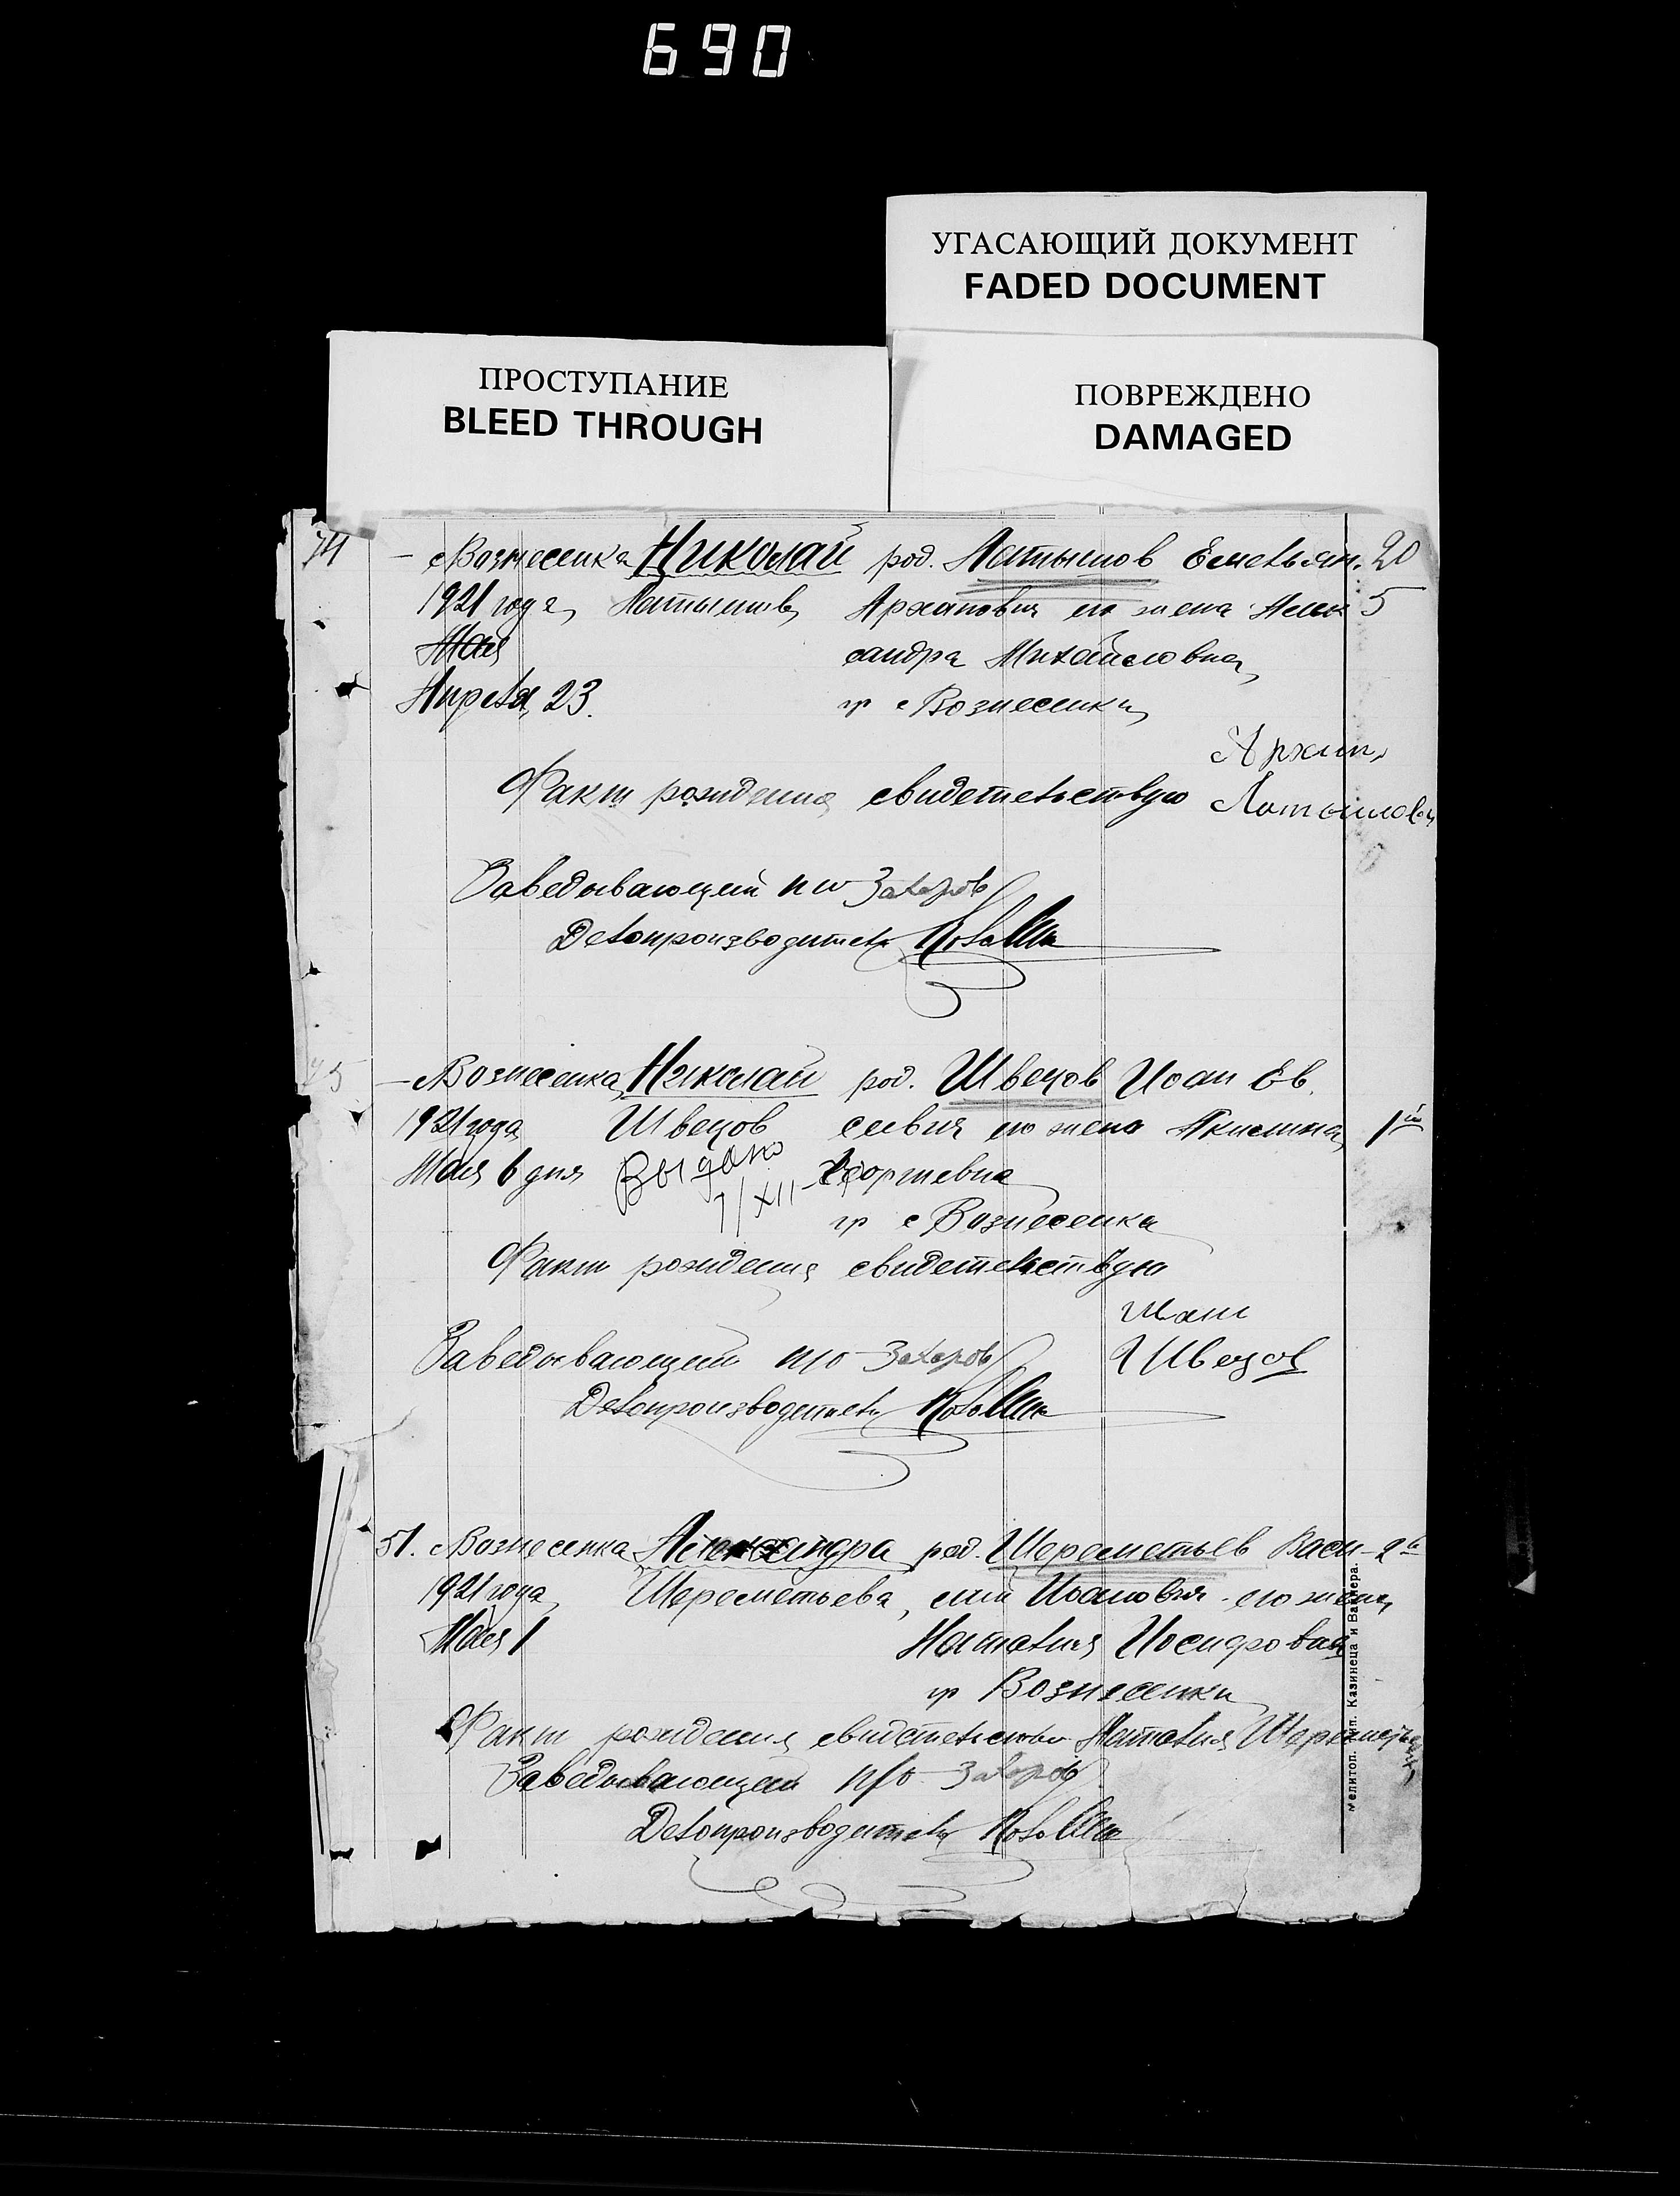 690
УГАСАЮЩИЙ ДОКУМЕНТ
FADED DOCUMENT
ПРОСТУПАНИЕ
BLEED THROUGH
ПОВРЕЖДЕНО
DAMAGED
74 — с Вознесенка Николай род. Латышов Емельян. 20
1921 года, Латышов, Архипович его жена Алек 5
Мая сандра Михайловна,
Апреля, 23. гр с Вознесенки,
Архип,
Факт рождения свидетельствую Латышов
Заведывающий п/о Захаров
Делопроизводитель
75 — с Вознесенка, Николай род. Швецов Иоан Ев.
1921 года Швецов сеевич его жена Акилина, 1й
Мая 6 дня Выдано Георгиевна
7/XII гр с Вознесенка
Факт рождения свидетельствую
Иван
Заведывающий п/о Захаров Швецов
Делопроизводитель
51. с Вознесенка, Александра род. Шереметьев Васи- 2й
1921 года, Шереметьева, лий Иоанович его жена,
Мая 1 Наталия Иосифовая
гр Вознесенки
Факт рождения свидетельствую Наталия
Заведывающий п/о Захаров
Делопроизводитель
Мелитоп. тип. Казинеца и Вагнера.